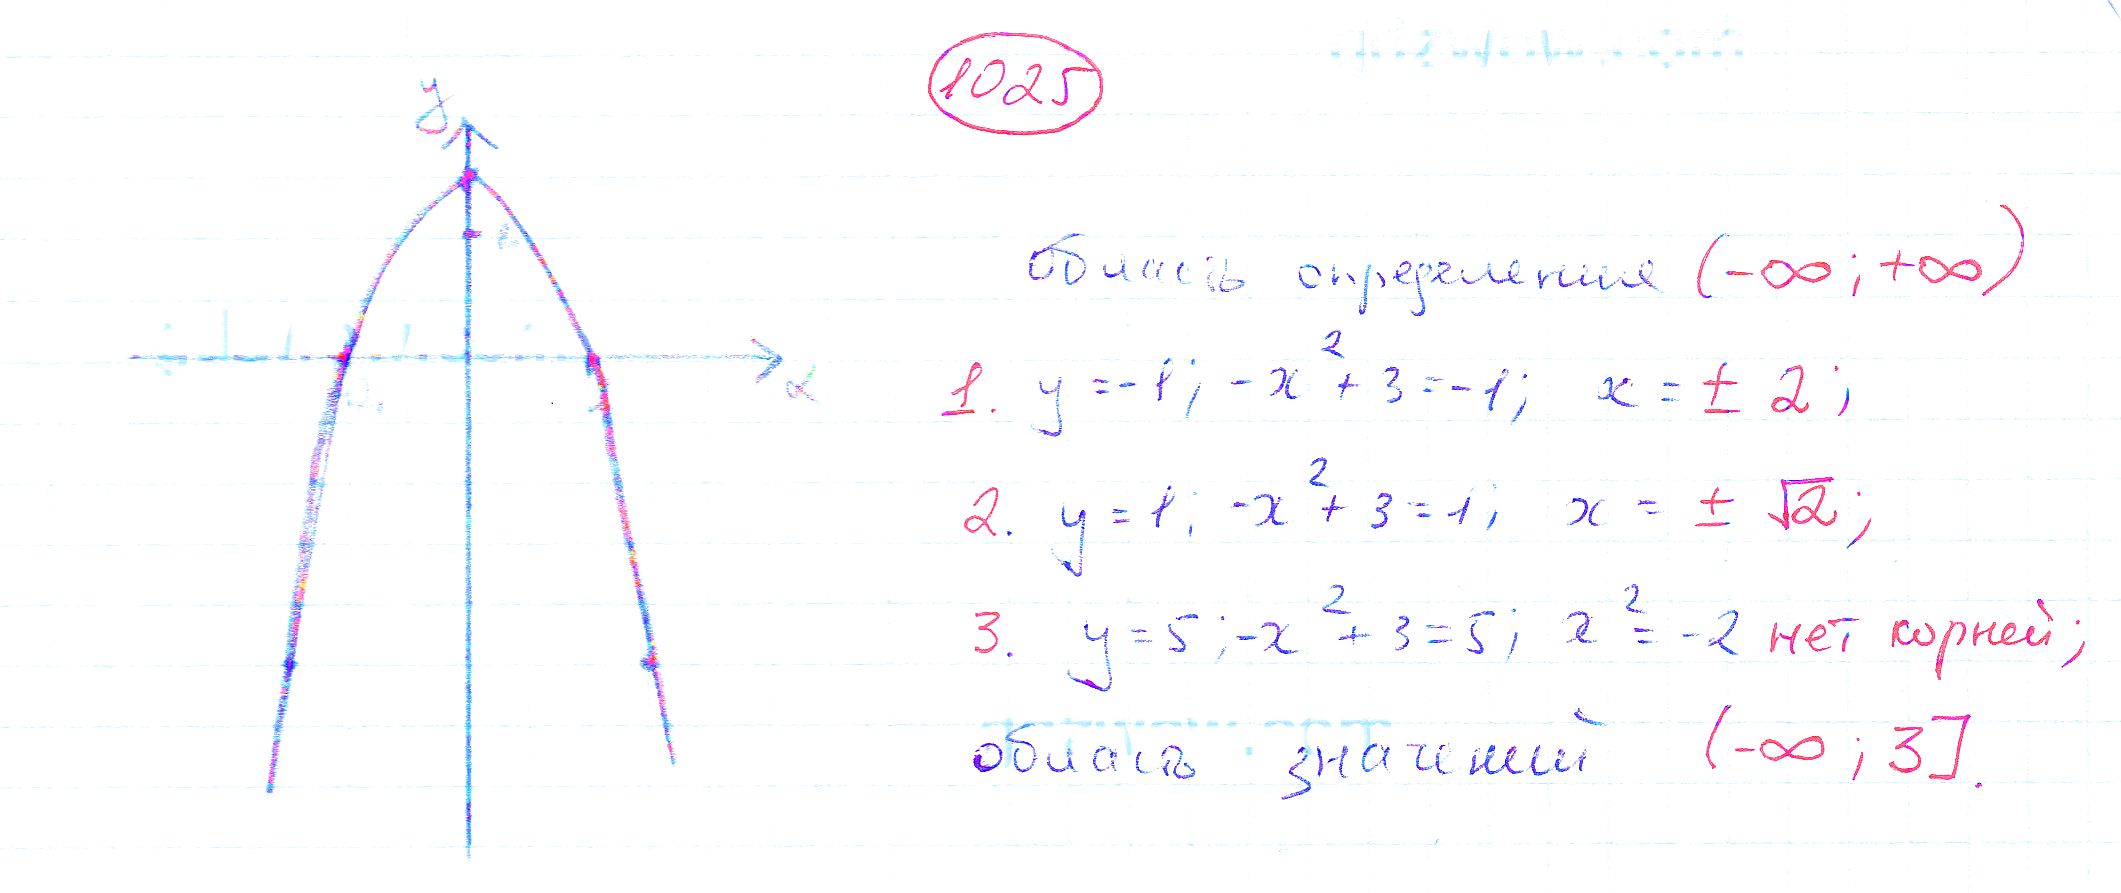 1025
y
x
область определения (-∞; +∞)
1. y = -1; -x² + 3 = -1; x = ± 2;
2. y = 1; -x² + 3 = 1; x = ± √2;
3. y = 5; -x² + 3 = 5; x² = -2 нет корней;
область значений (-∞; 3].